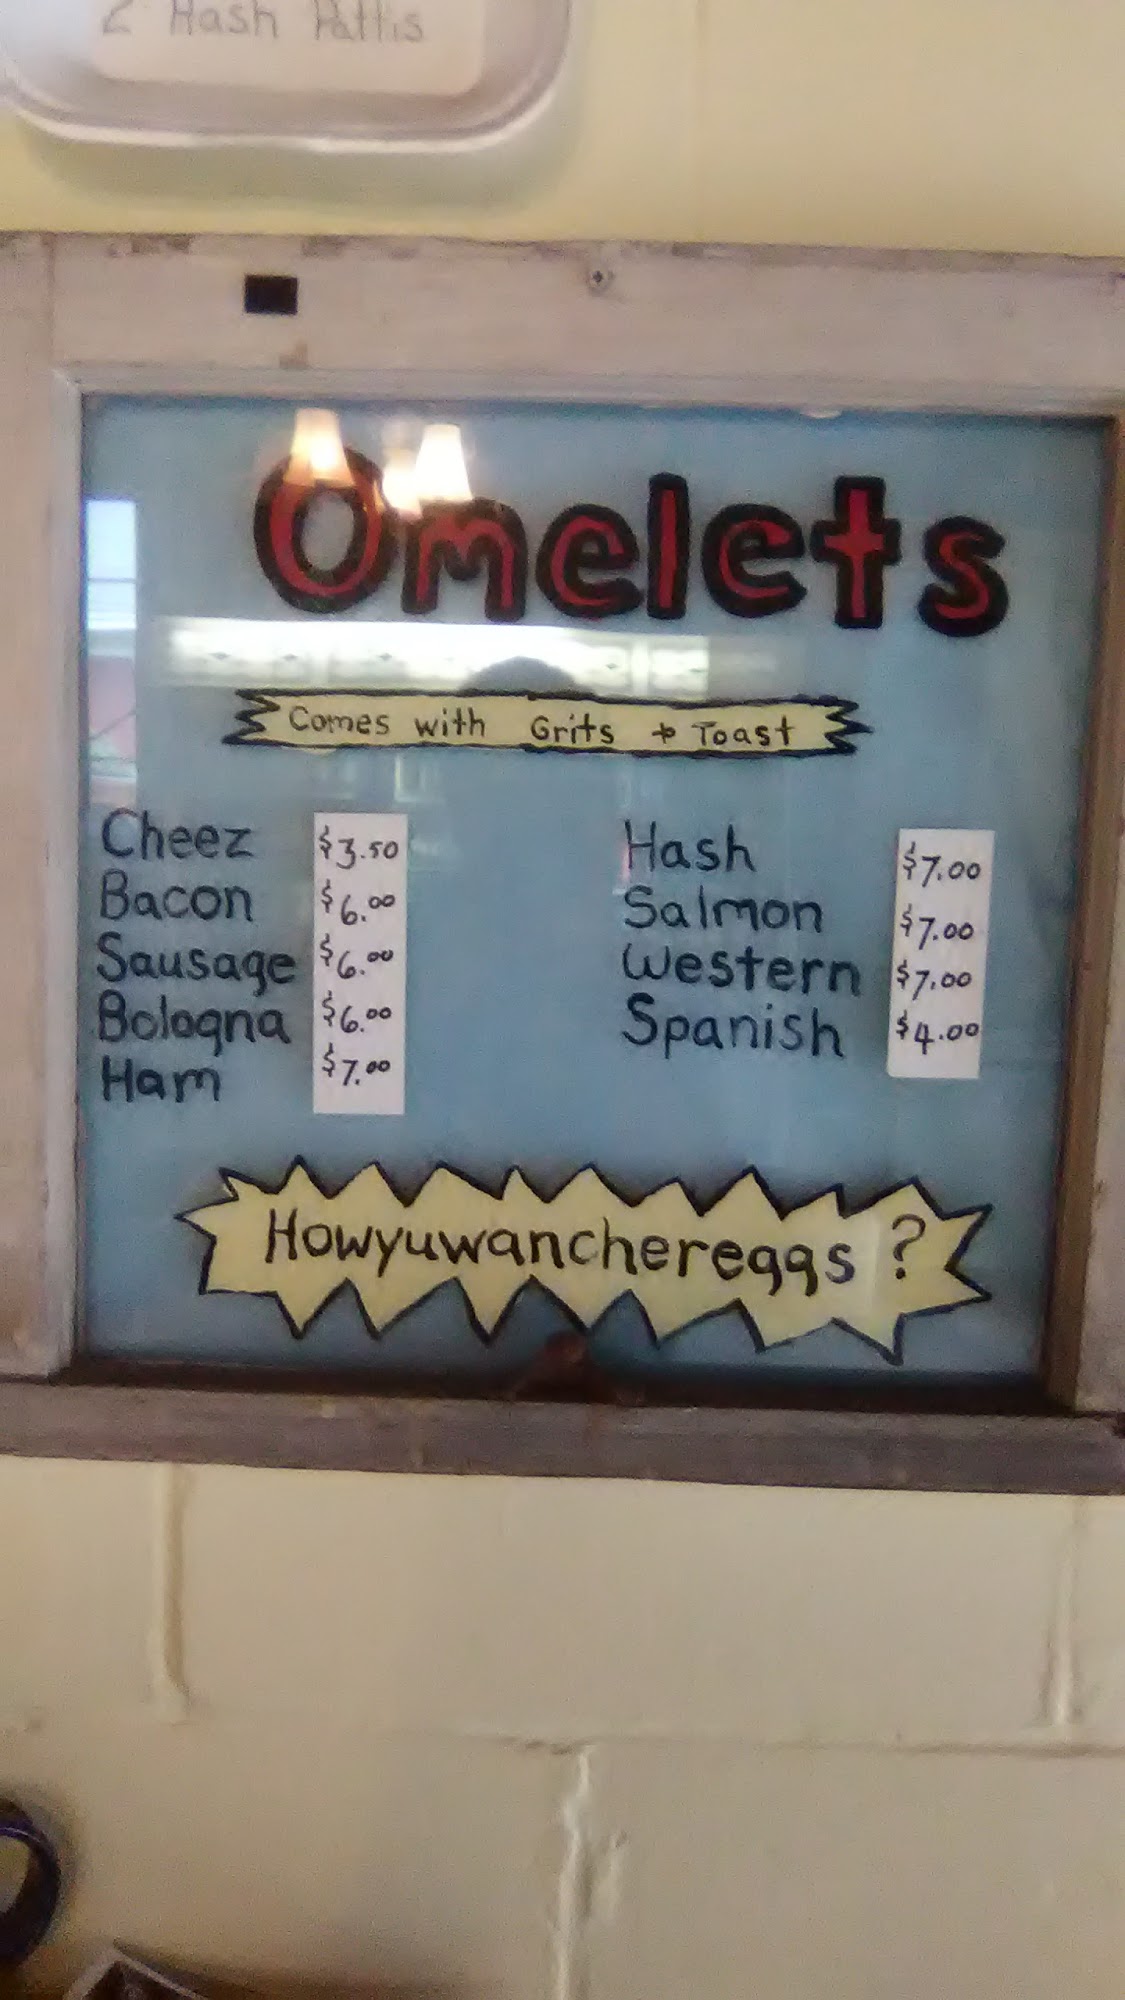 2 Hash Pattis
Omelets
Comes with Grits & Toast
Cheez $3.50
Bacon $6.00
Sausage $6.00
Bologna $6.00
Ham $7.00
Hash $7.00
Salmon $7.00
Western $7.00
Spanish $4.00
Howyuwanchereggs ?